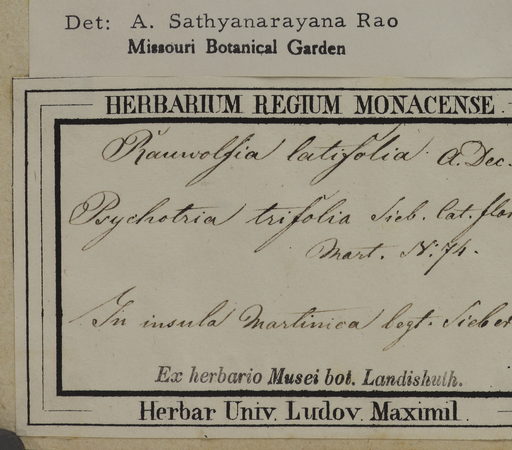 Det: A. Sathyanarayana Rao
Missouri Botanical Garden
HERBARIUM REGIUM MONACENSE.
Rauwolfia latifolia A. Dec.
Psychotria trifolia Sieb. Cat. flor
Mart. N. 74.
In insula Martinica legt. Sieber
Ex herbario Musei bot. Landishuth.
Herbar Univ. Ludov. Maximil.